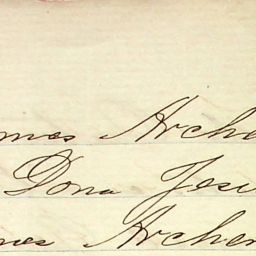 mes Arche
Dona Jesu
nes Archer